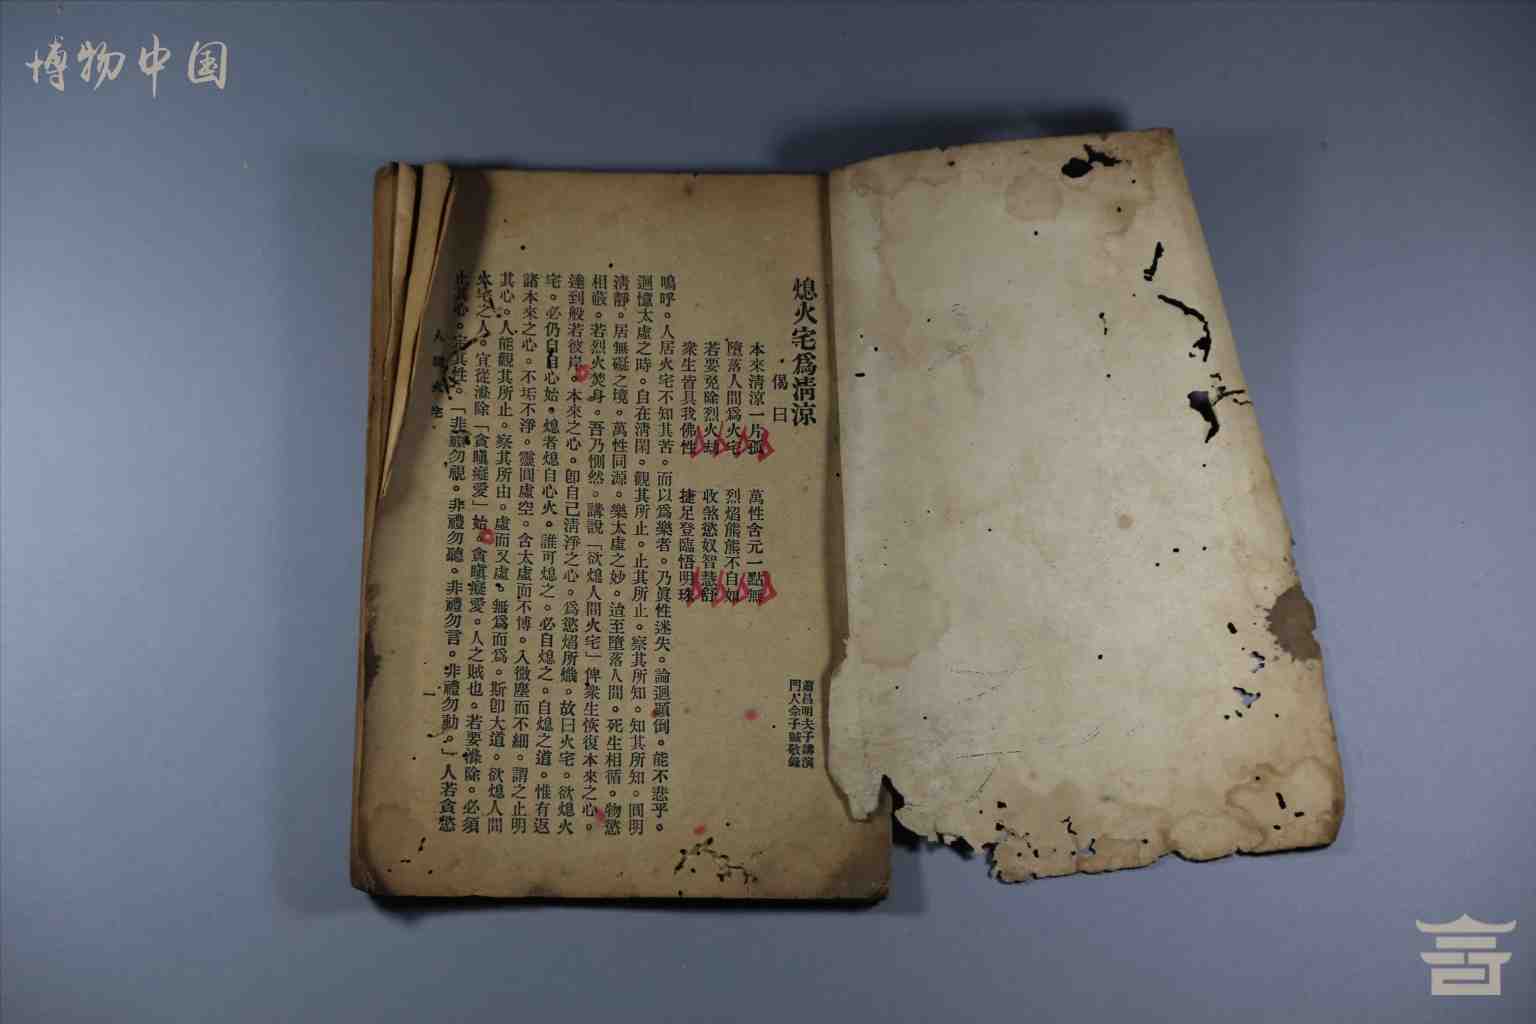 博物中国
熄火宅爲淸涼
偈曰
蕭昌明夫子講演
門人余子誠敬錄
本來淸涼一片孤 萬性含元一點無
墮落人間爲火宅 烈焰熊熊不自如
若要免除烈火劫 收煞慾奴智慧舒
衆生皆具我佛性 捷足登臨悟明珠
嗚呼。人居火宅不知其苦。而以爲樂者。乃眞性迷失。論迴顚倒。能不悲乎。
迴憶太虛之時。自在淸閑。觀其所止。止其所止。察其所知。知其所知。圓明
淸靜。居無礙之境。萬性同源。樂太虛之妙。迨至墮落人間。死生相循。物慾
相蔽。若烈火焚身。吾乃惻然。講說「欲熄人間火宅」俾衆生恢復本來之心。
達到般若彼岸。本來之心。卽自己淸淨之心。爲慾焰所熾。故曰火宅。欲熄火
宅。必仍自自心始。熄者熄自心火。誰可熄之。必自熄之。自熄之道。惟有返
諸本來之心。不垢不淨。靈圓虛空。含太虛而不博。入微塵而不細。謂之止明
其心。人能觀其所止。察其所由。虛而又虛。無爲而爲。斯卽大道。欲熄人間
火宅之人。宜從滌除「貪瞋癡愛」始。貪瞋癡愛。人之賊也。若要滌除。必須
其心。定其性。「非禮勿視。非禮勿聽。非禮勿言。非禮勿動。」人若貪慾
人 火宅
一